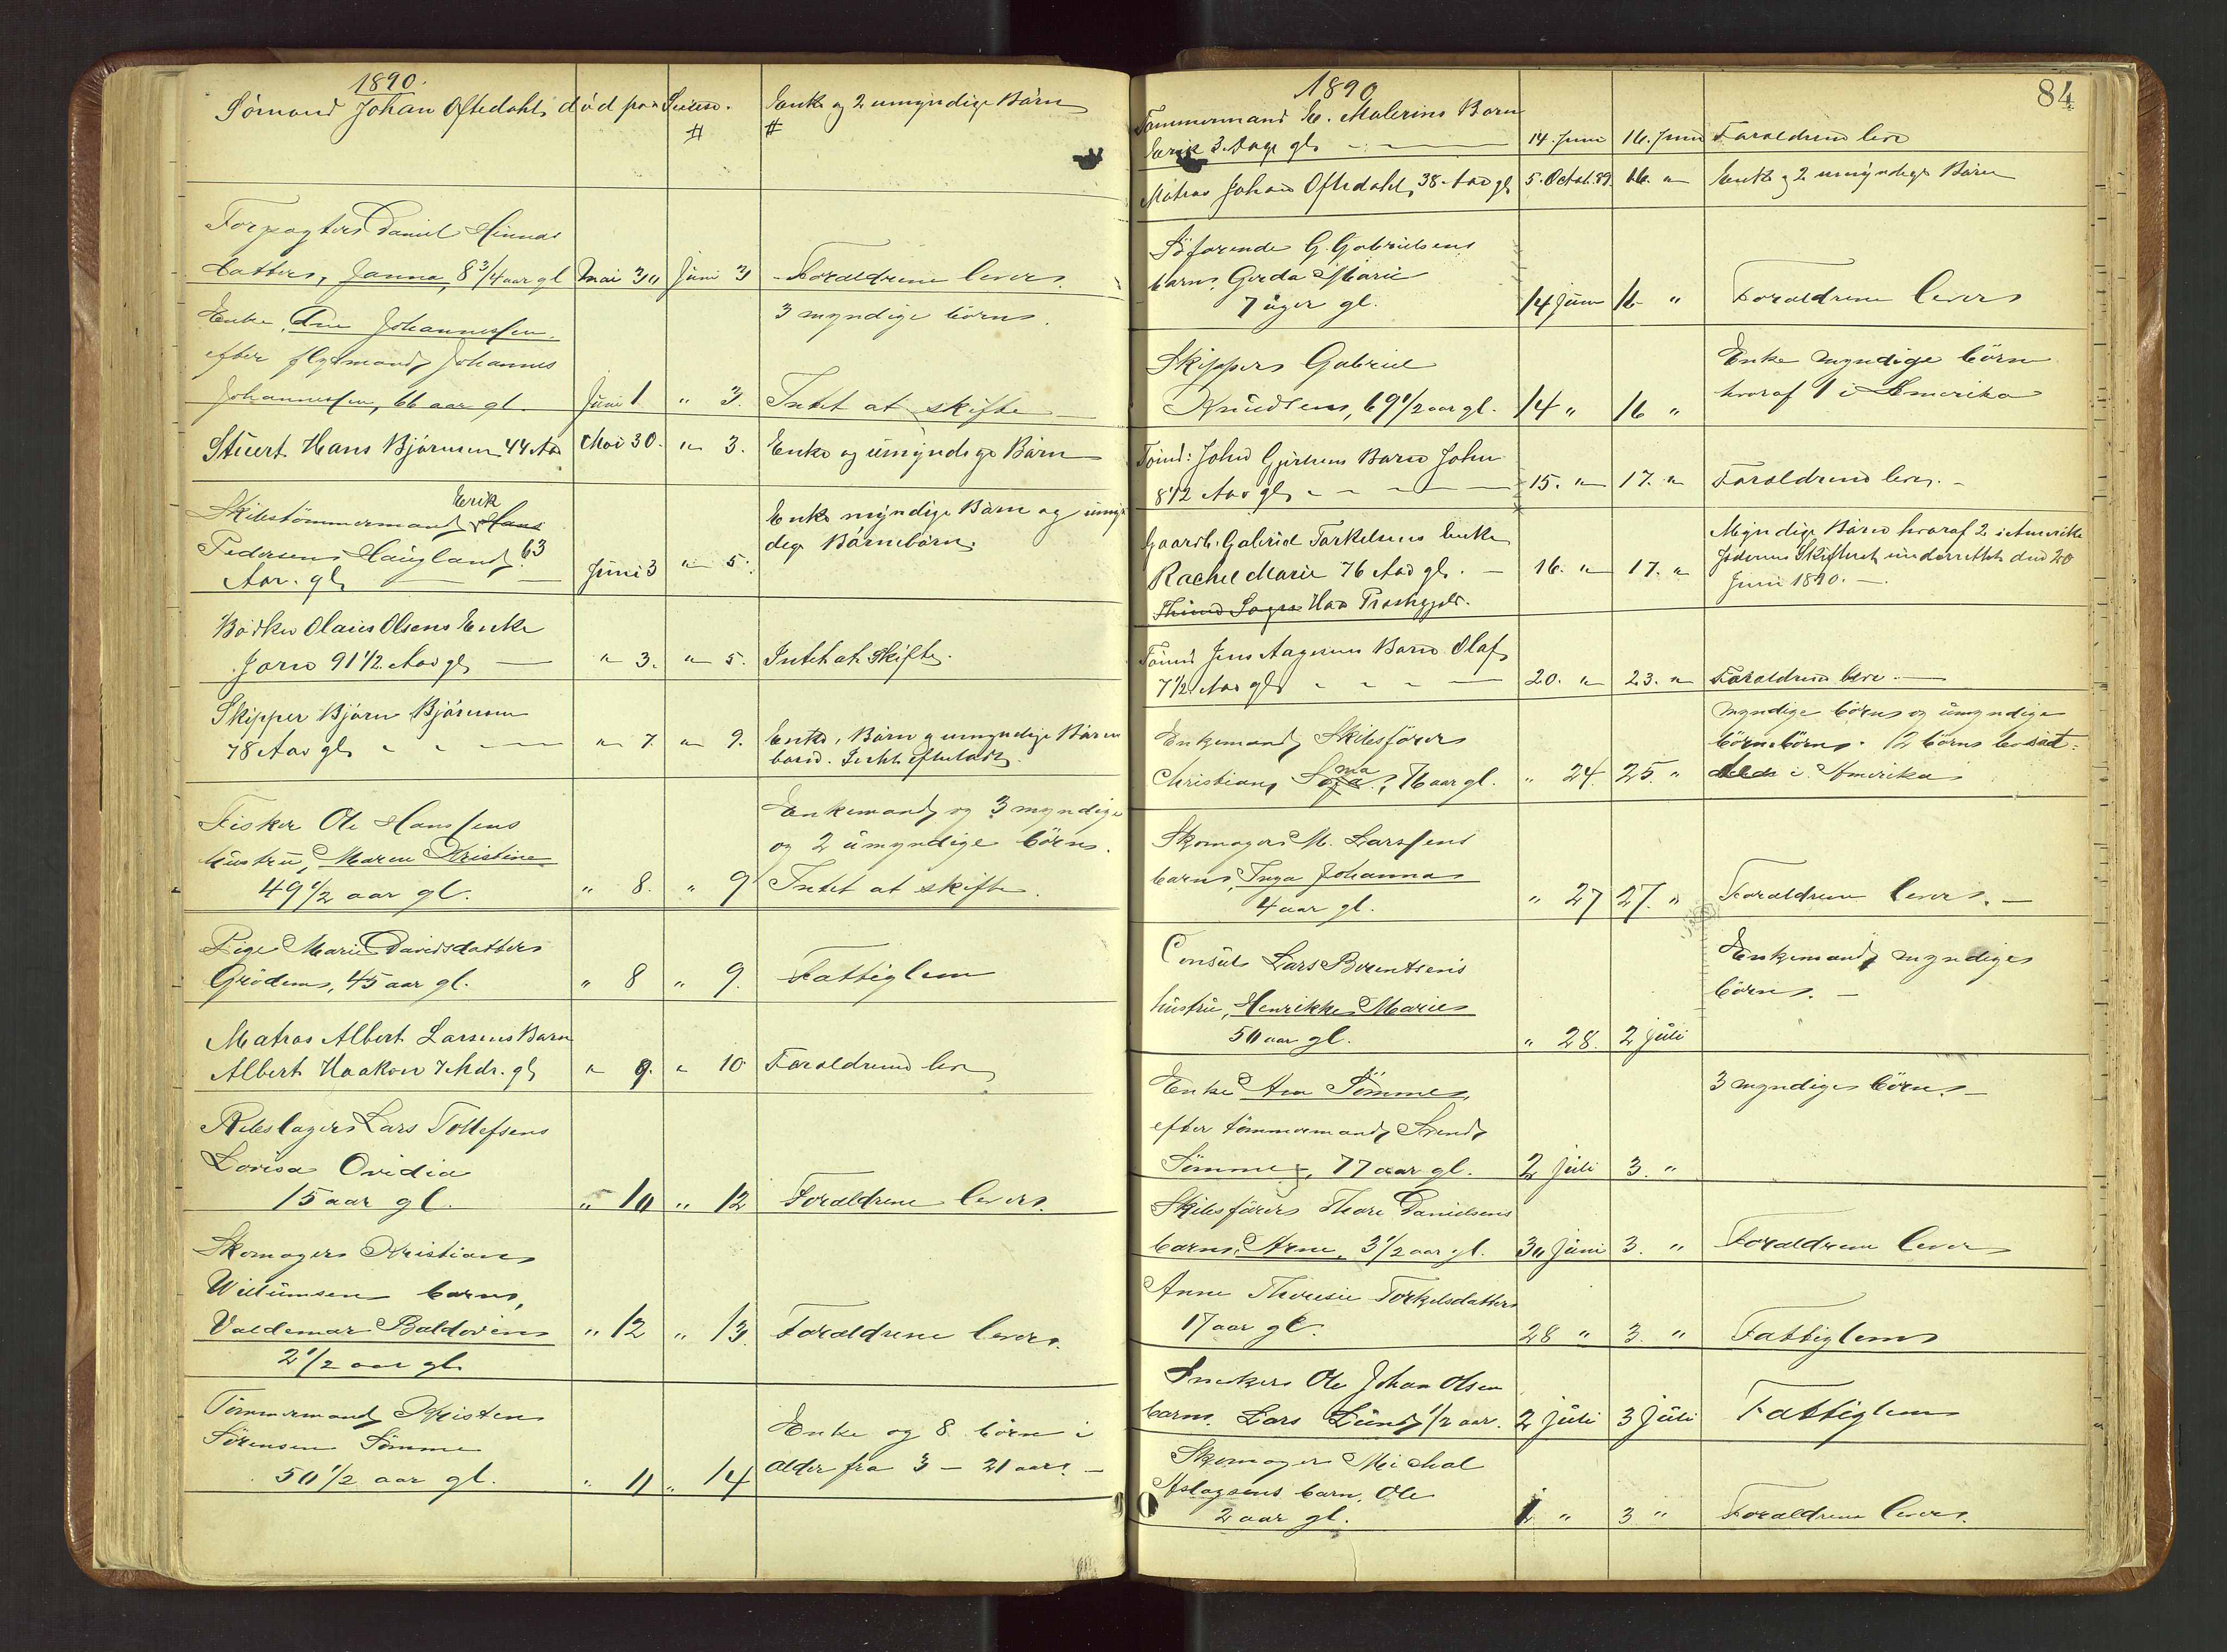 1890.
Sømand Johan Oftedahl, død paa Søen.
#
Enke og 2 umyndige Børn
#
Forpagter Daniel Hinnas
datter, Janna, 8 3/4 aar gl
Mai 30
Juni 3
Forældrene lever.
Enke, Ane Johannessen,
3 myndige børn.
efter flydmand Johannes
Johannessen, 66 aar gl.
Juni 1
" 3.
Intet at skifte
Stuert Hans Bjørnsen 44 Aar
Mai 30.
" 3.
Enke og umyndige Børn
Erik
Skibstømmermand Hans
Pedersen Haugland, 63
Aar. gl
Juni 3
" 5.
Enke myndige Børn og umyn
dige Børnebørn.
Bødker Olaus Olsens Enke
Joren 91 1/2 Aar gl
" 3.
" 5.
Intet at Skifte.
Skipper Bjørn Bjørnsen
78 Aar gl
" 7.
" 9.
Enke, Børn og umyndige Børne
børn. Intet efterladt
Fisker Ole Hanssens
hustru, Maren Kristine
49 1/2 aar gl.
" 8.
" 9
Enkemand og 3 myndige
og 2 umyndige børn.
Intet at skifte.
Pige Marie Davidsdatter
Grødem, 45 aar gl.
" 8
" 9.
Fattiglem
Matros Albert Larsens Barn
Albert Haakon 7 Mdr. gl
" 9.
" 10
Forældrene lever
Rebslager Lars Tollefsens
Lovisa Ovidia
15 aar gl.
" 10
" 12
Forældrene lever.
Skomager Kristian
Willumsen barn,
Valdemar Baldevin
2 1/2 aar gl.
" 12
" 13.
Forældrene lever.
Tømmermand Kristen
Sørensen Sømme
50 1/2 aar gl.
" 11
" 14
Enke og 8 børn i
alder fra 3 – 21 aar. –
84
1890
Tømmermand E. Malerins Barn
Erik 3 Dage gl
14. Juni
16. Juni
Forældrene leve
Matros Johan Oftedahl, 38 Aar gl
5. Octob. 89.
16. "
Enke og 2 umyndige Børn
Søfarende G. Gabrielsens
barn, Gerda Marie
7 uger gl.
14 Juni
16 "
Forældrene lever
Skipper Gabriel
Knudsen, 69 1/2 aar gl.
14 "
16 "
Enke myndige børn
hvoraf 1 i Amerika
Tømd: John Gjertsens Barn John
8 1/2 Aar gl
15. "
17. "
Forældrene lever. –
Gaardb. Gabriel Torkelsens Enke
Rachel Marie 76 Aar gl. –
Haa Præstegjeld.
16. "
17. "
Myndige Børn hvoraf 2 i Amerika
Jæderens Skifteret underrettet den 20
Juni 1890. –
Tømd Jens Aagesens Barn Olaf
7 1/2 Aar gl
20. "
23. "
Forældrene leve. –
Enkemand Skibsfører
Christian 76 aar gl.
" 24.
25. "
myndige børn og umyndige
børnebørn. 12 børn bosat
i Amerika
Skomager M. Larssens
barn, Inga Johanna
4 aar gl.
" 27
27. "
Forældrene lever. –
Consul Lars Berentsens
hustru, Henrikke Marie
50 aar gl.
" 28.
2 Juli
Enkemand, myndige
børn. –
Enke Ane Sømme,
efter tømmermand Svend
Sømme, 77 aar gl.
2 Juli
3. "
3 myndige børn. –
Skibsfører Thore Danielsens
barn, Arne, 3 1/2 aar gl.
30 Juni
3. "
Forældrene lever
Anne Theresie Torkelsdatter
17 aar gl.
28 "
3. "
Fattiglem
Snekker Ole Johan Olsen
barn. Lars Lund 1/2 aar.
2 Juli
3 Juli
Fattiglem
Skomager Michal
Aslagsens barn, Ole
2 aar gl.
1 "
3 "
Forældrene lever.